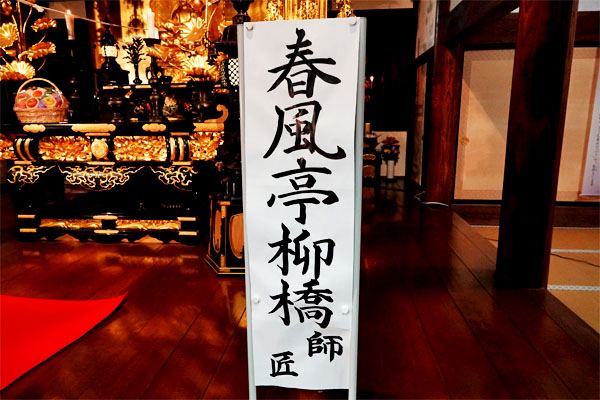 春風亭柳橋師匠